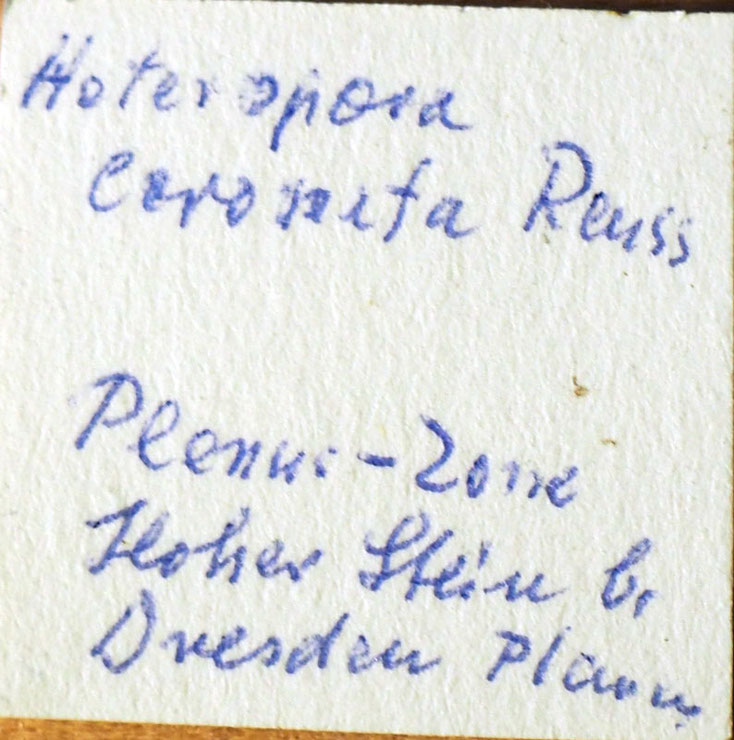 Heteropora
coronata Reuss
Plenus-Zone
Hoher Stein b.
Dresden Plauen